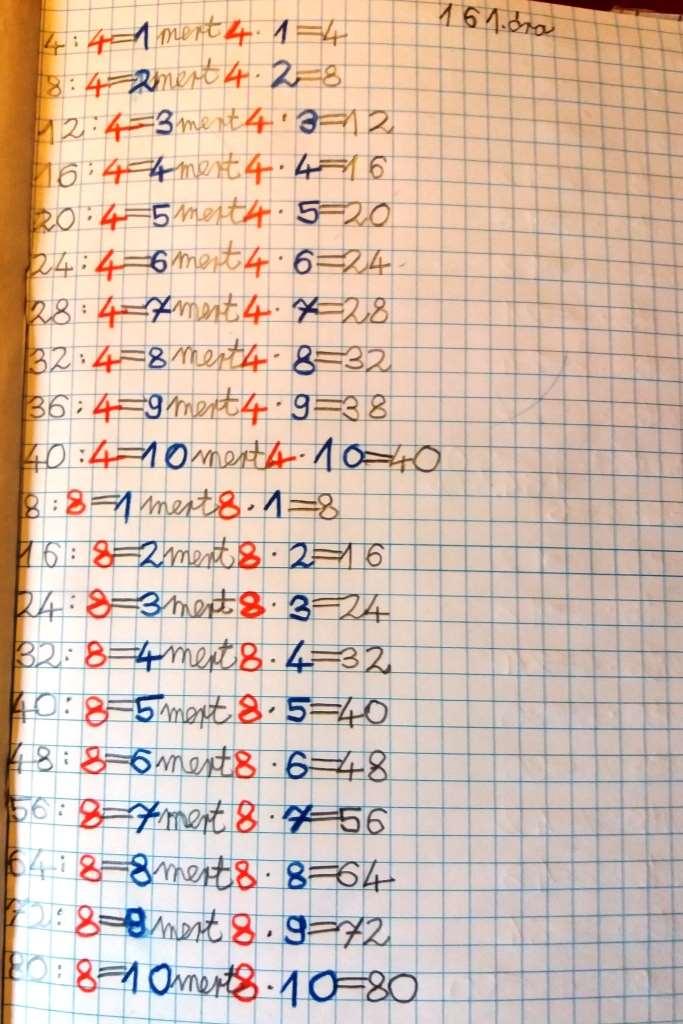 161.óra
4:4=1 mert 4·1=4
8:4=2 mert 4·2=8
12:4=3 mert 4·3=12
16:4=4 mert 4·4=16
20:4=5 mert 4·5=20
24:4=6 mert 4·6=24
28:4=7 mert 4·7=28
32:4=8 mert 4·8=32
36:4=9 mert 4·9=38
40:4=10 mert 4·10=40
8:8=1 mert 8·1=8
16:8=2 mert 8·2=16
24:8=3 mert 8·3=24
32:8=4 mert 8·4=32
40:8=5 mert 8·5=40
48:8=6 mert 8·6=48
56:8=7 mert 8·7=56
64:8=8 mert 8·8=64
72:8=9 mert 8·9=72
80:8=10 mert 8·10=80